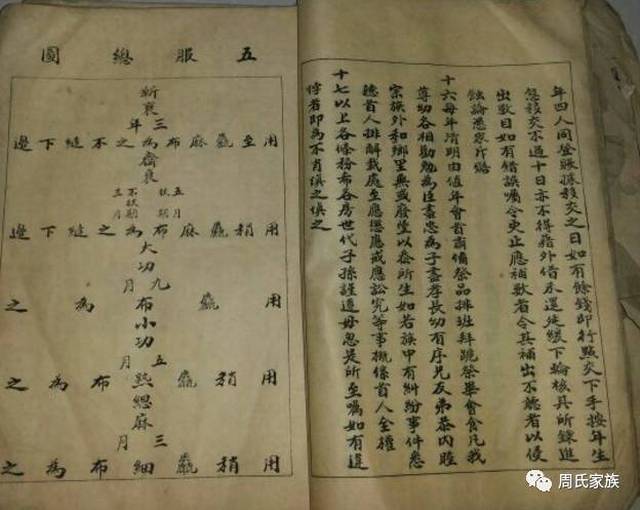 年四人同登賬據移交之日如有餘錢即行點交下手按年生
息移交不過十日亦不得藉外借未還延緩下輪核具所錄進
出數目如有錯誤囑令更正應補數者令其補出不聽者以侵
蝕論悉眾斥
十六每年清明由值年會首商備祭品排班拜跪祭畢會食凡我
尊幼各相勸勉為臣盡忠為子盡孝長幼有序兄友弟恭內睦
宗族外和鄉里無或廢墜以忝所生如若族中有糾紛事件悉
聽首人排解裁處至應懲應戒應訟究等事概係首人全權
十七以上各條粉布各房世代子孫謹遵毋忽是所至囑如有違
悖者即為不肖慎之慎之
五服總圖
斬衰
三年
用至麤麻布為之不縫下邊
齊衰
五月
杖期
不杖期
三月
用稍麤麻布為之縫下邊
大功
九月
用麤布為之
小功
五月
用稍麤布為之
緦麻
三月
用稍麤細布為之
周氏家族